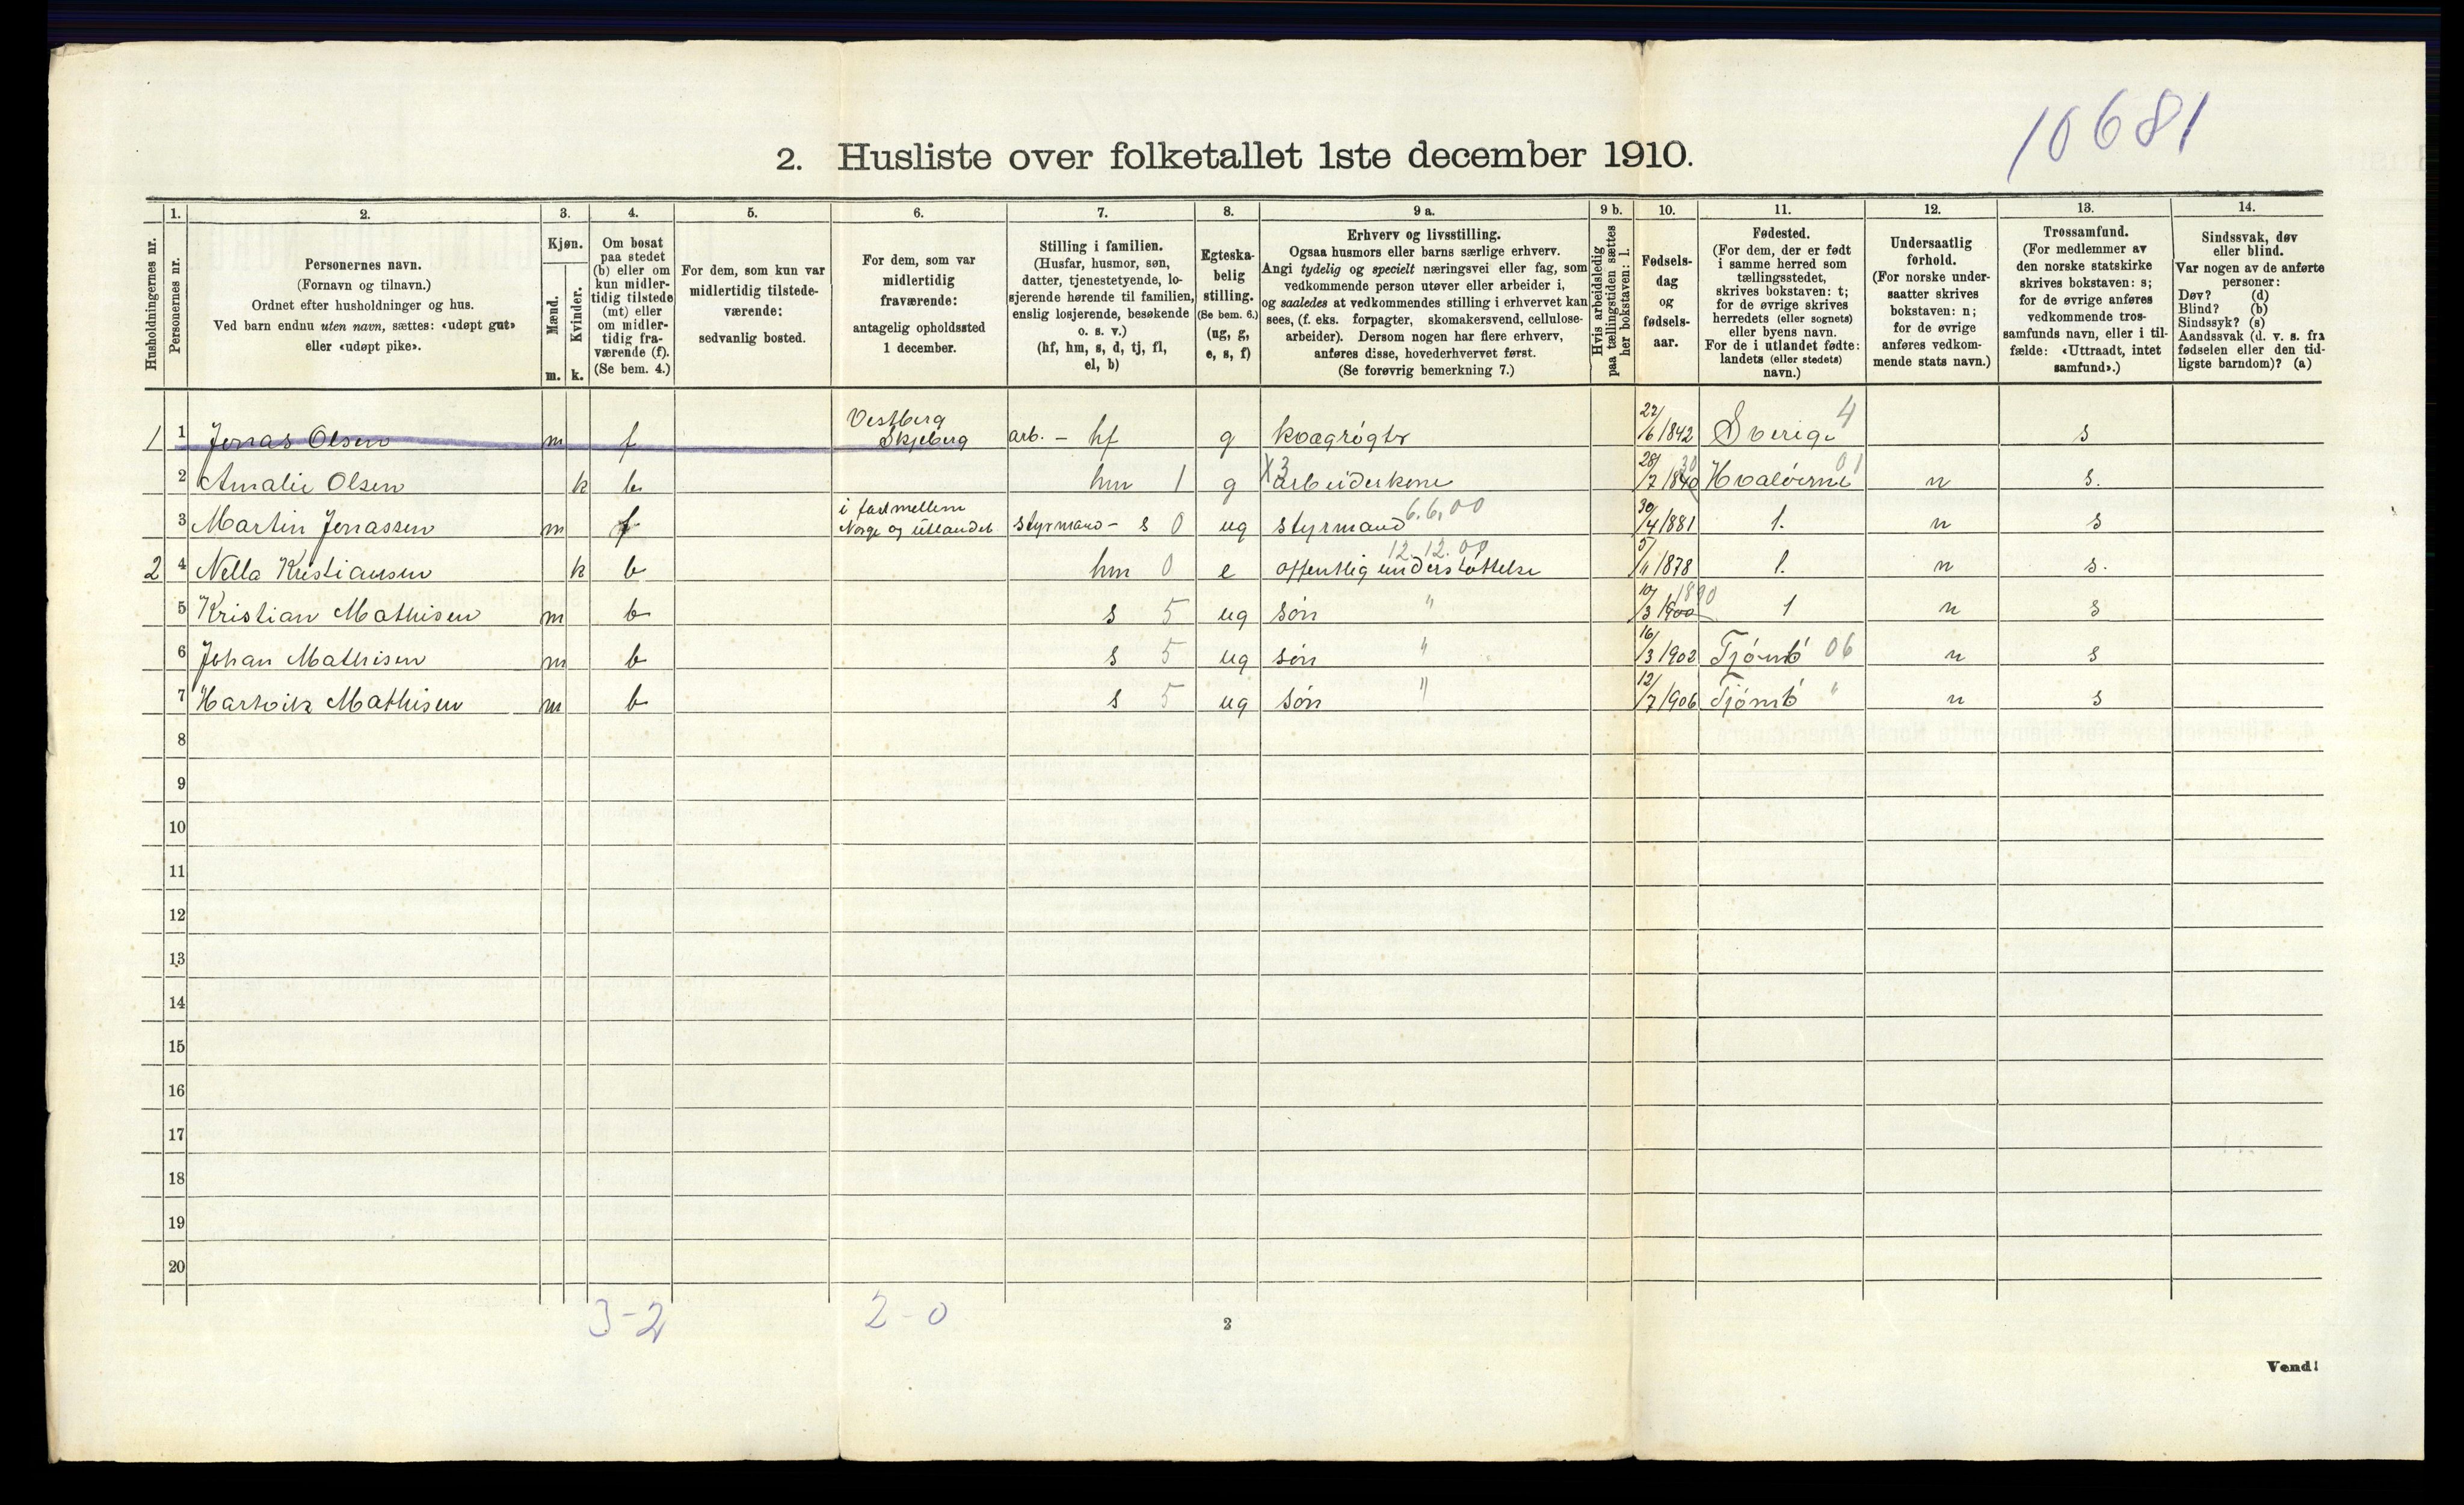 10681
2. Husliste over folketallet 1ste december 1910.
Husholdningernes nr.
1.
Personernes nr.
2.
Personernes navn.
(Fornavn og tilnavn.)
Ordnet efter husholdninger og hus.
Ved barn endnu uten navn, sættes: «udøpt gut»
eller «udøpt pike».
3.
Kjøn.
Mænd.
Kvinder.
m. k.
4.
Om bosat
paa stedet
(b) eller om
kun midler-
tidig tilstede
(mt) eller
om midler-
tidig fra-
værende (f).
(Se bem. 4.)
5.
For dem, som kun var
midlertidig tilstede-
værende:
sedvanlig bosted.
6.
For dem, som var
midlertidig
fraværende:
antagelig opholdssted
1 december.
7.
Stilling i familien.
(Husfar, husmor, søn,
datter, tjenestetyende, lo-
sjerende hørende til familien,
enslig losjerende, besøkende
o. s. v.)
(hf, hm, s, d, tj, fl,
el, b)
8.
Egteska-
belig
stilling.
(Se bem. 6.)
(ug, g,
e, s, f)
9 a.
Erhverv og livsstilling.
Ogsaa husmors eller barns særlige erhverv.
Angi tydelig og specielt næringsvei eller fag, som
vedkommende person utøver eller arbeider i,
og saaledes at vedkommendes stilling i erhvervet kan
sees, (f. eks. forpagter, skomakersvend, cellulose-
arbeider). Dersom nogen har flere erhverv,
anføres disse, hovederhvervet først.
(Se forøvrig bemerkning 7.)
9 b.
Hvis arbeidsledig
paa tællingstiden sættes
her bokstaven: l.
10.
Fødsels-
dag
og
fødsels-
aar.
11.
Fødested.
(For dem, der er født
i samme herred som
tællingsstedet,
skrives bokstaven: t;
for de øvrige skrives
herredets (eller sognets)
eller byens navn.
For de i utlandet fødte:
landets (eller stedets)
navn.)
12.
Undersaatlig
forhold.
(For norske under-
saatter skrives
bokstaven: n;
for de øvrige
anføres vedkom-
mende stats navn.)
13.
Trossamfund.
(For medlemmer av
den norske statskirke
skrives bokstaven: s;
for de øvrige anføres
vedkommende tros-
samfunds navn, eller i til-
fælde: «Uttraadt, intet
samfund».)
14.
Sindssvak, døv
eller blind.
Var nogen av de anførte
personer:
Døv? (d)
Blind? (b)
Sindssyk? (s)
Aandssvak (d. v. s. fra
fødselen eller den tid-
ligste barndom)? (a)
1 1 Jonas Olsen m f Vestberg Skjeberg arb. - hf g kvægrøgter 22/6 1842 Sverige 4 s
2 Amalie Olsen k b hm 1 g X3 arbeiderkone 28/7 1840 30 Hvaløerne 01 n s.
3 Martin Jonassen m f i fart mellem Norge og utlandet styrmand - s 0 ug styrmand 6.6,00 30/4 1881 t. n s
2 4 Nella Kristiansen k b hm 0 e offentlig understøttelse 12.12.00 5/11 1878 t. n s.
5 Kristian Mathisen m b s 5 ug søn " 10/3 1900 1890 t n s
6 Johan Mathisen m b s 5 ug søn " 16/3 1902 Tjömö 06 n s
7 Hartvik Mathisen m b s 5 ug søn " 12/7 1906 Tjömö " n s
8
9
10
11
12
13
14
15
16
17
18
19
20
3-2 2-0
2
Vend!